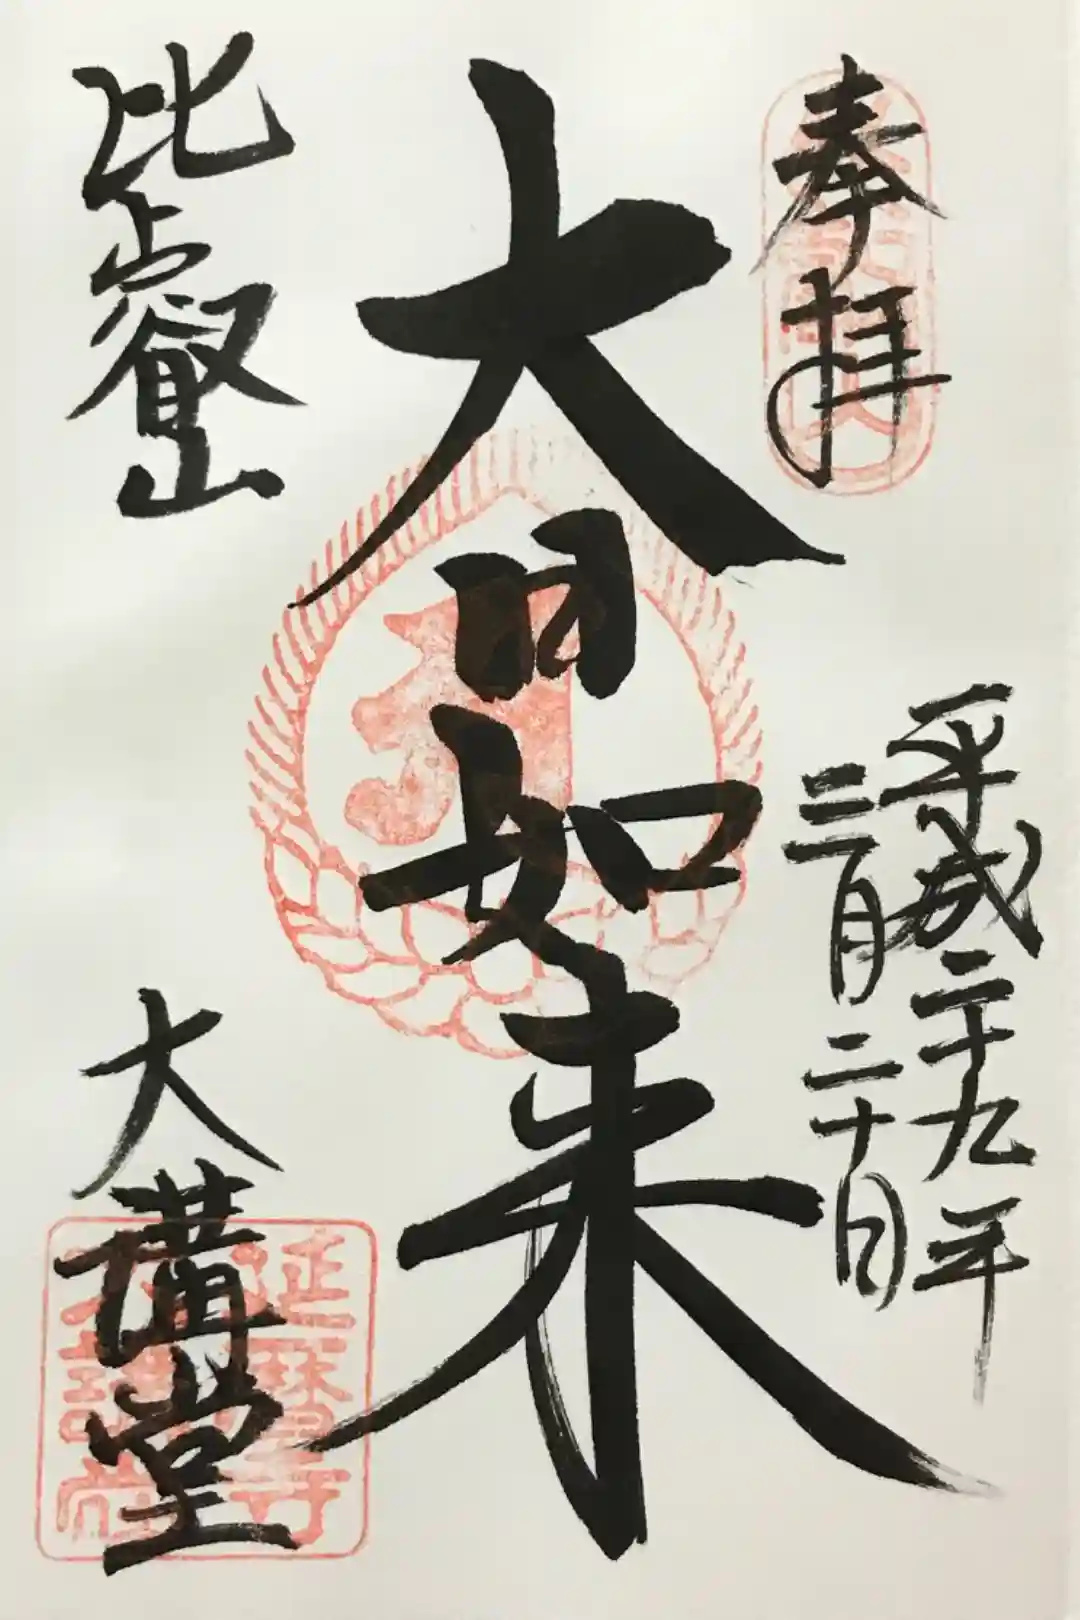 奉拝
平成二十九年
三月二十日
大日如来
比叡山
大講堂
延暦寺
大講堂